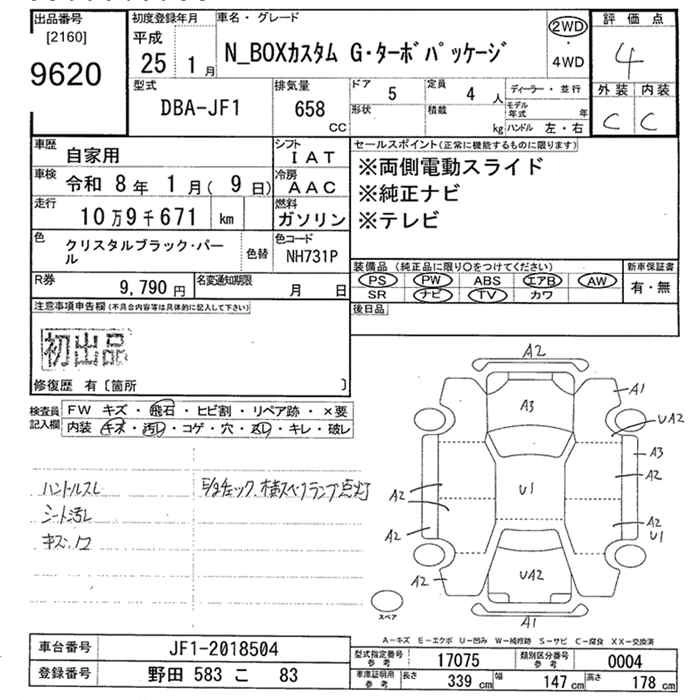 出品番号
[2160]
9620
初度登録年月
平成
25年 1月
車名・グレード
N_BOXカスタム G・ターボパッケージ
2WD
・
4WD
評価点
4
外装 内装
C C
型式
DBA-JF1
排気量
658
CC
ドア 5
形状
定員 4 人
積載 kg
ディーラー・並行
モデル年式 年
ハンドル 左・右
車歴 自家用
車検 令和 8年 1月( 9日)
走行 10万9千671 km
色 クリスタルブラック・パール
色替
シフト IAT
冷房 AAC
燃料 ガソリン
色コード NH731P
セールスポイント(正常に機能するものに限ります)
※両側電動スライド
※純正ナビ
※テレビ
R券 9,790円
名変通知期限 月 日
装備品 (純正品に限り〇をつけてください)
PS PW ABS エアB AW
SR ナビ TV カワ
新車保証書
有・無
後日品
注意事項申告欄(不具合内容等は具体的に記入して下さい)
初出品
修復歴 有〔箇所 〕
検査員記入欄
FW キズ・飛石・ヒビ割・リペア跡・×要
内装 キズ・汚れ・コゲ・穴・スレ・キレ・破レ
ハンドルスレ
シート汚レ
キズ
A2
A3
A1
UA2
A3
A2
A2
U1
A2
A2
U1
A2
UA2
A1
スペア
A−キズ E−エクボ U−凹み W−補修跡 S−サビ C−腐食 XX−交換済
車台番号 JF1-2018504
登録番号 野田 583 こ 83
型式指定番号 参考 17075
類別区分番号 参考 0004
車庫証明用 参考 長さ 339cm 幅 147cm 高さ 178cm